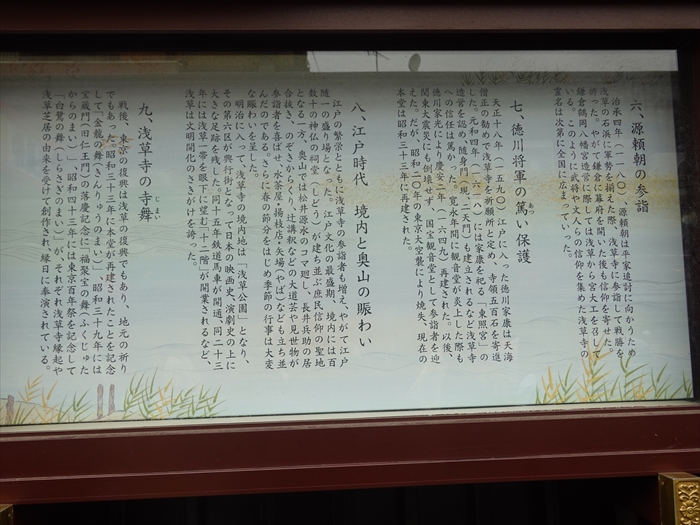 六、源頼朝の参詣
治承四年(一一八〇)、源頼朝は平家追討に向かうため
浅草の石浜に軍勢を揃えた際、浅草寺に参詣して戦勝を
祈った。やがて鎌倉に幕府を開いた後も信仰を寄せた。
鎌倉鶴岡八幡宮造営に際しては浅草から宮大工を召して
いる。このように武将・文人らの信仰を集めた浅草寺の
霊名は次第に全国に広まっていった。
七、徳川将軍の篤い保護
あつ
天正十八年(一五九〇)江戸に入った徳川家康は天海
僧正の勧めで浅草寺を祈願所と定め、寺領五百石を寄進
した。元和四年(一六一八)には家康を祀る「東照宮」の
造営を認め、随身門(現・二天門)も建立されるなど浅草寺
への信任は篤かった。寛永年間に観音堂が炎上した際も
徳川家光により慶安二年(一六四九)再建された。以後、
関東大震災にも倒壊せず、国宝観音堂として参詣者を迎
えた。だが、昭和二〇年の東京大空襲により焼失、現在の
本堂は昭和三十三年に再建された。
八、江戸時代 境内と奥山の賑わい
江戸の繁栄とともに浅草寺の参詣者も増え、やがて江戸
随一の盛り場となった。江戸文化の最盛期、境内には百
数十の神仏の祠堂(しどう)が建ち並ぶ庶民信仰の聖地
となる一方、奥山では松井源水のコマ廻し、長井兵助の居
合抜き、のぞきからくり、辻講釈など大道芸や見世物が
参詣者を喜ばせ、水茶屋・楊枝店・矢場(やば)なども立ち並
んだのである。さらに春の節分をはじめ季節の行事は大変
な賑わいをみせた。
明治に入って、浅草寺の境内地は「浅草公園」となり、
その第六区が興行街となって日本の映画史、演劇史の上に
大きな足跡を残した。同十五年鉄道馬車が開通、同二十三
年には浅草一帯を眼下に望む「十二階」が開業されるなど、
浅草は文明開化のさきがけを待った。
九、浅草寺の寺舞
じまい
戦後、東京の復興は浅草の復興でもあり、地元の祈り
でもあった。昭和三十三年に本堂が再建されたことを記念
して「金龍の舞(きんりゅうのまい)」、昭和三十九年には
宝蔵門(旧仁王門)の落慶記念の「福聚の舞(ふくじゅ
からのまい)」、昭和四十三年には東京百年祭を記念して
「白鷺の舞(しらさぎのまい)」が、それぞれ浅草寺縁起や
浅草芝居の由来を受けて創作され、縁日に奉演されている。